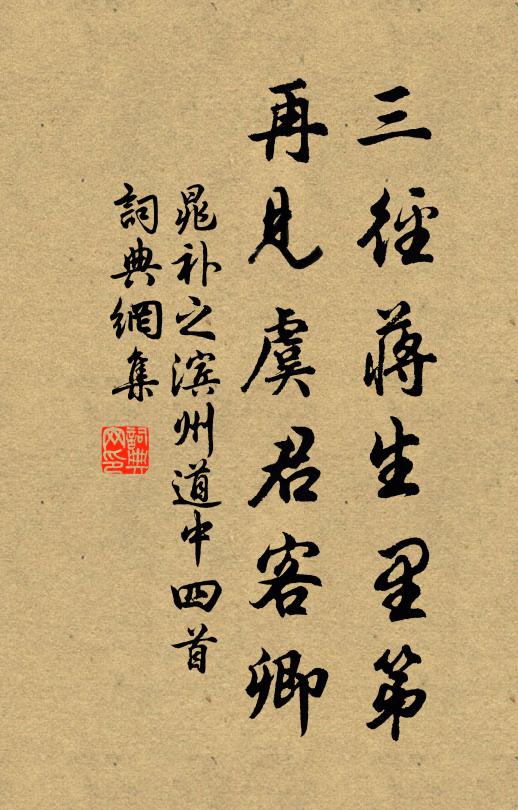 三徑蔣生里第
再見虞君客卿
晁补之滨州道中四首
詞典網集
詞典網印